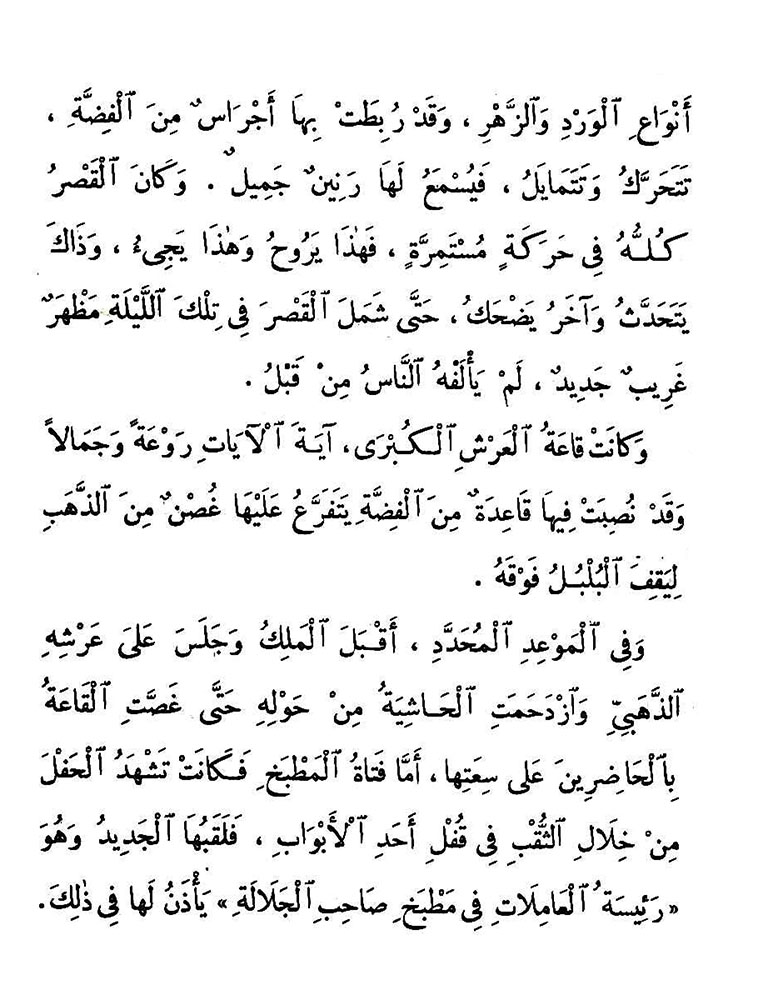 أَنْوَاعِ ٱلْوَرْدِ وَٱلزَّهْرِ ، وَقَدْ رُبِطَتْ بِهَا أَجْرَاسٌ مِنَ ٱلْفِضَّةِ ،
تَتَحَرَّكُ وَتَتَمَايَلُ ، فَيُسْمَعُ لَهَا رَنِينٌ جَمِيلٌ . وَكَانَ ٱلْقَصْرُ
كُلُّهُ فِى حَرَكَةٍ مُسْتَمِرَّةٍ ، فَهٰذَا يَرُوحُ وَهٰذَا يَجِىءُ ، وَذَاكَ
يَتَحَدَّثُ وَآخَرُ يَضْحَكُ ، حَتَّى شَمَلَ ٱلْقَصْرَ فِى تِلْكَ ٱللَّيْلَةِ مَظْهَرٌ
غَرِيبٌ جَدِيدٌ ، لَمْ يَأْلَفْهُ ٱلنَّاسُ مِنْ قَبْلُ .
وَكَانَتْ قَاعَةُ ٱلْعَرْشِ ٱلْكُبْرَى، آيَةَ ٱلْآيَاتِ رَوْعَةً وَجَمَالاً
وَقَدْ نُصِبَتْ فِيهَا قَاعِدَةٌ مِنَ ٱلْفِضَّةِ يَتَفَرَّعُ عَلَيْهَا غُصْنٌ مِنَ ٱلذَّهَبِ
لِيَقِفَ ٱلْبُلْبُلُ فَوْقَهُ .
وَفِى ٱلْمَوْعِدِ ٱلْمُحَدَّدِ ، أَقْبَلَ ٱلْمَلِكُ وَجَلَسَ عَلَى عَرْشِهِ
ٱلذَّهَبِىِّ وَٱزْدَحَمَتِ ٱلْحَاشِيَةُ مِنْ حَوْلِهِ حَتَّى غَصَّتِ ٱلْقَاعَةُ
بِٱلْحَاضِرِينَ عَلَى سِعَتِهَا ، أَمَّا فَتَاةُ ٱلْمَطْبَخِ فَكَانَتْ تَشْهَدُ ٱلْحَفْلَ
مِنْ خِلَالِ ٱلثُّقْبِ فِى قُفْلِ أَحَدِ ٱلْأَبْوَابِ ، فَلَقَبُهَا ٱلْجَدِيدُ وَهُوَ
« رَئِيسَةُ ٱلْعَامِلَاتِ فِى مَطْبَخِ صَاحِبِ ٱلْجَلَالَةِ » يَأْذَنُ لَهَا فِى ذٰلِكَ.